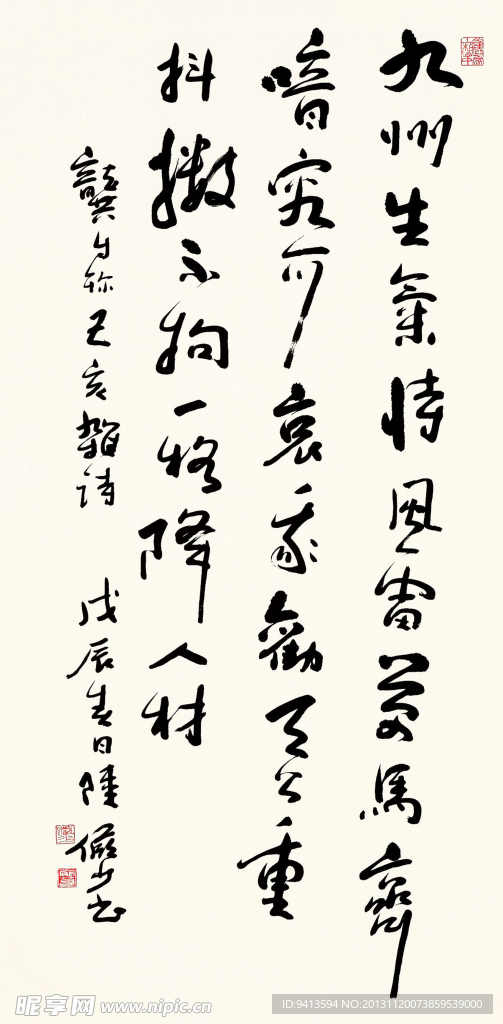 九州生氣恃風雷萬馬齊
喑究可哀我勸天公重
抖擻不拘一格降人材
龔自珍己亥雜詩
戊辰春日陸儼少書
昵享网 www.nipic.cn
ID:9413594 NO:20131120073859539000